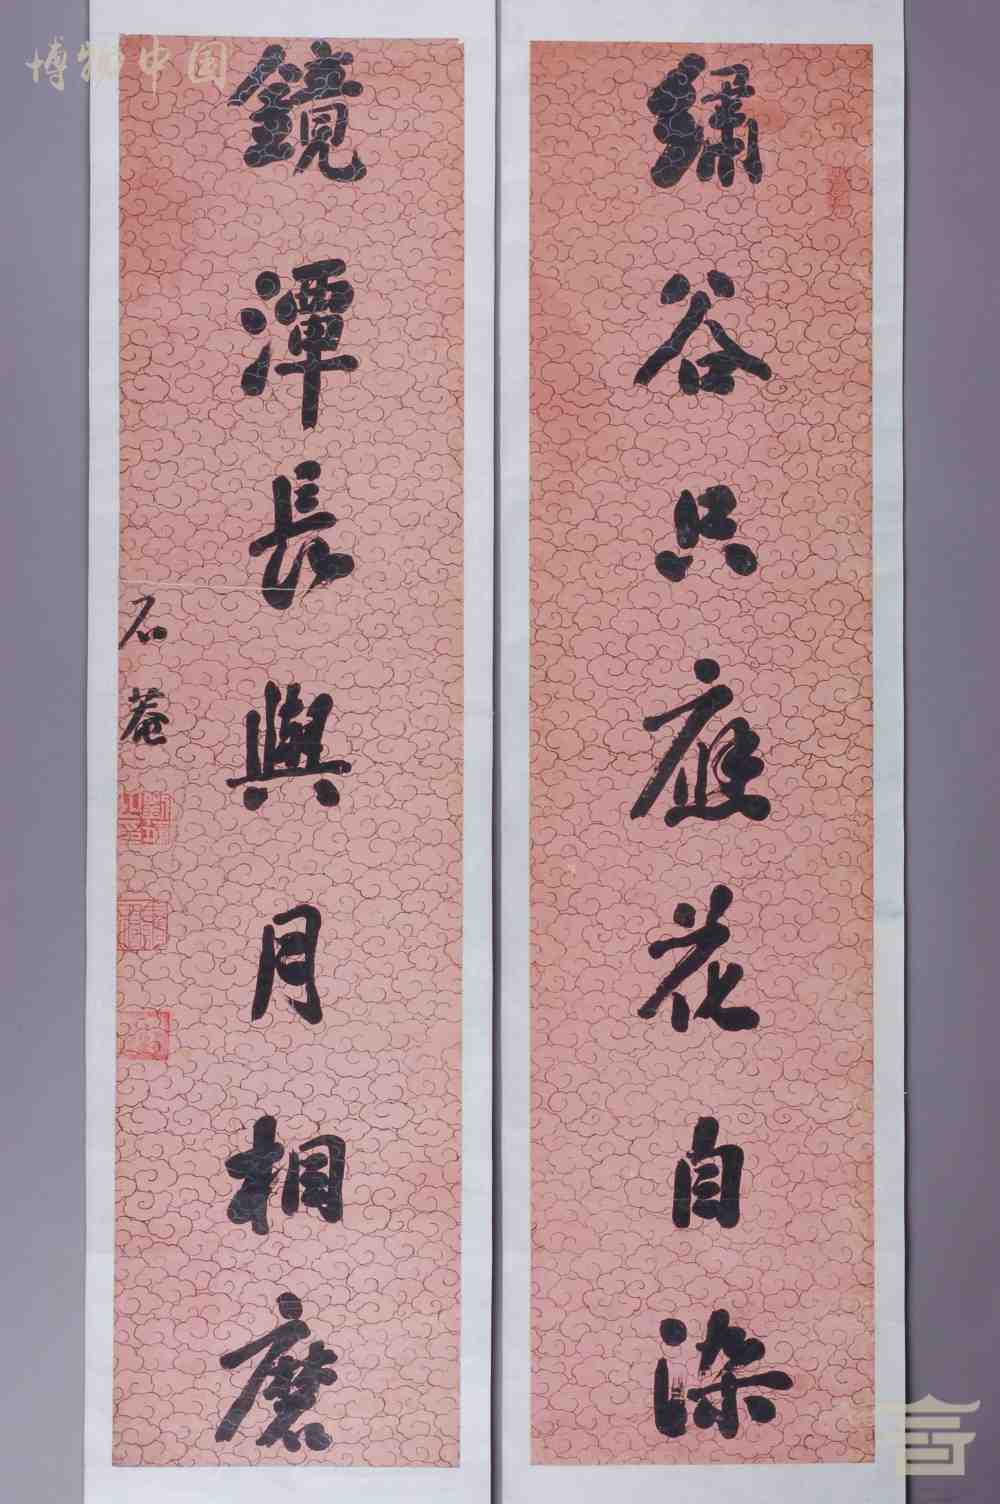 繡谷只應花自染
鏡潭長與月相磨
石菴
博物中国